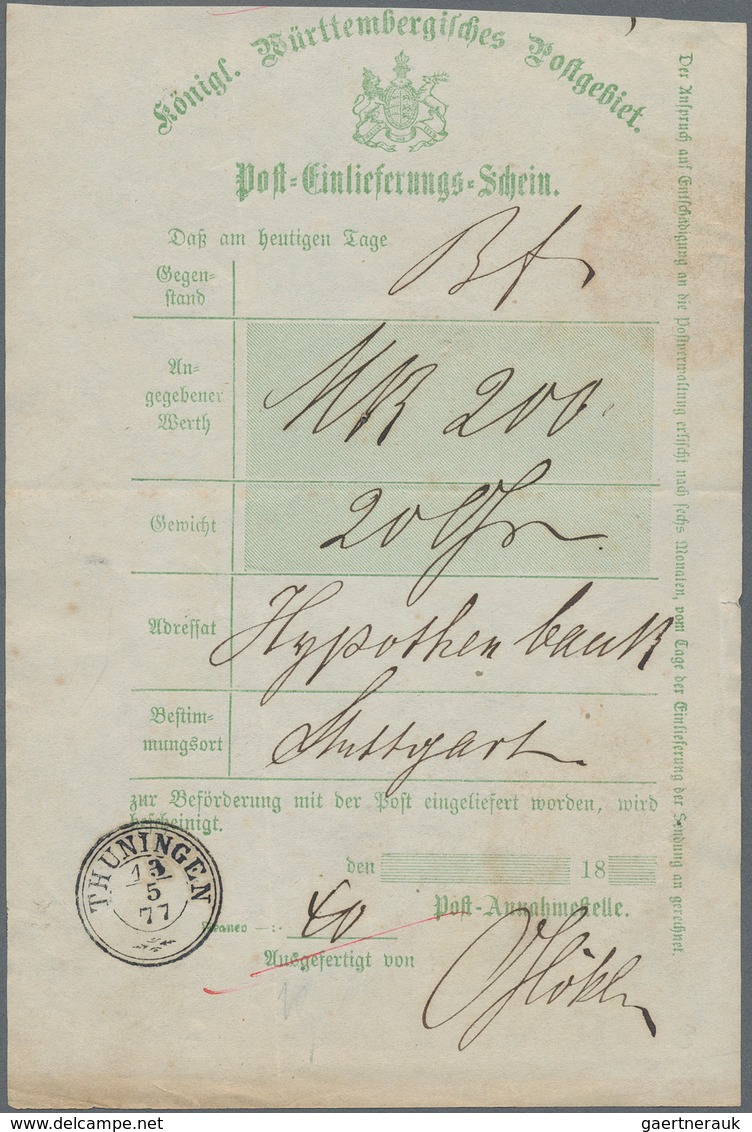 Königl. Württembergisches Postgebiet.
Post-Einlieferungs-Schein.
Daß am heutigen Tage
Gegen-
stand
Bf
An-
gegebener
Werth
Mk 200.
Gewicht
20 Gr
Adressat
Hypothekenbank
Bestim-
mungsort
Stuttgart.
zur Beförderung mit der Post eingeliefert worden, wird
bescheinigt.
den 18
Post-Annahmestelle.
THUNINGEN
13
5
77
Franco —:- 40
Ausgefertigt von
Der Anspruch auf Entschädigung an die Postverwaltung erlischt nach sechs Monaten, vom Tage der Einlieferung der Sendung an gerechnet.
gaertnerauk